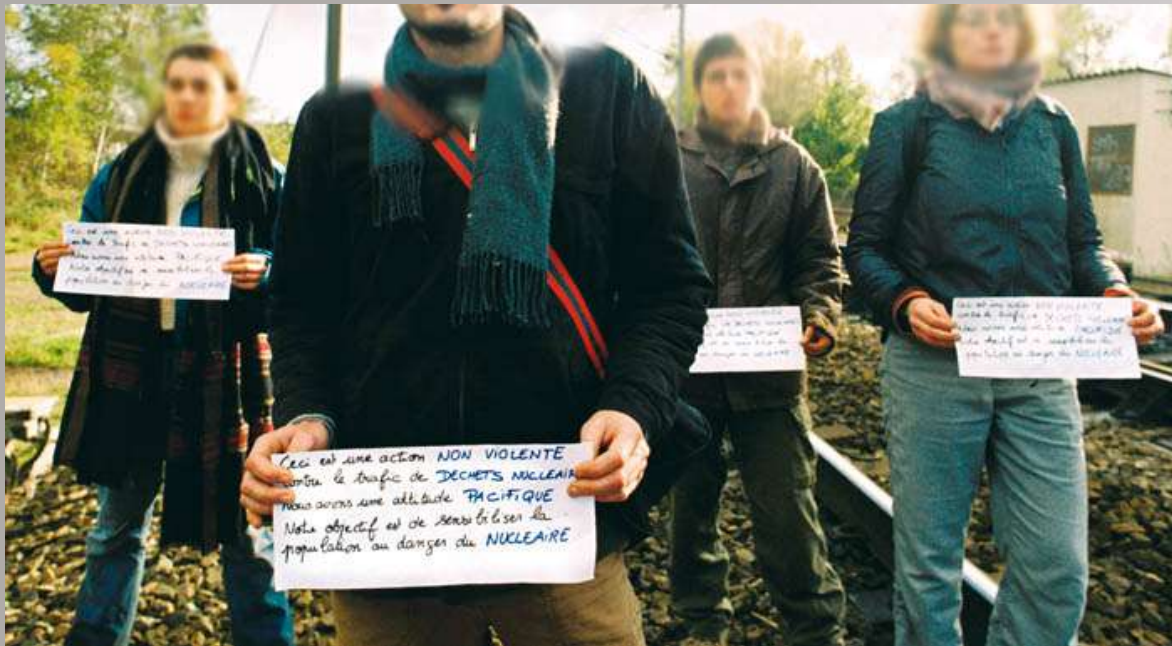 Ceci est une action NON VIOLENTE
contre le trafic de DECHETS NUCLEAIRE
Nous avons une attitude PACIFIQUE
Notre objectif est de sensibiliser la
population au danger du NUCLEAIRE
Ceci est une action NON VIOLENTE
contre le trafic de DECHETS NUCLEAIR
Nous avons une attitude PACIFIQUE
Notre objectif est de sensibiliser la
population au danger du NUCLEAIRE
VIOLENTE
DECHETS NUCLEAIRE
PACIFIQUE
danger du NUCLEAIRE
Ceci est une action NON VIOLENTE
contre le trafic de DECHETS NUCLEAIRE
Nous avons une attitude PACIFIQUE
Notre objectif est de sensibiliser la
population au danger du NUCLEAIRE